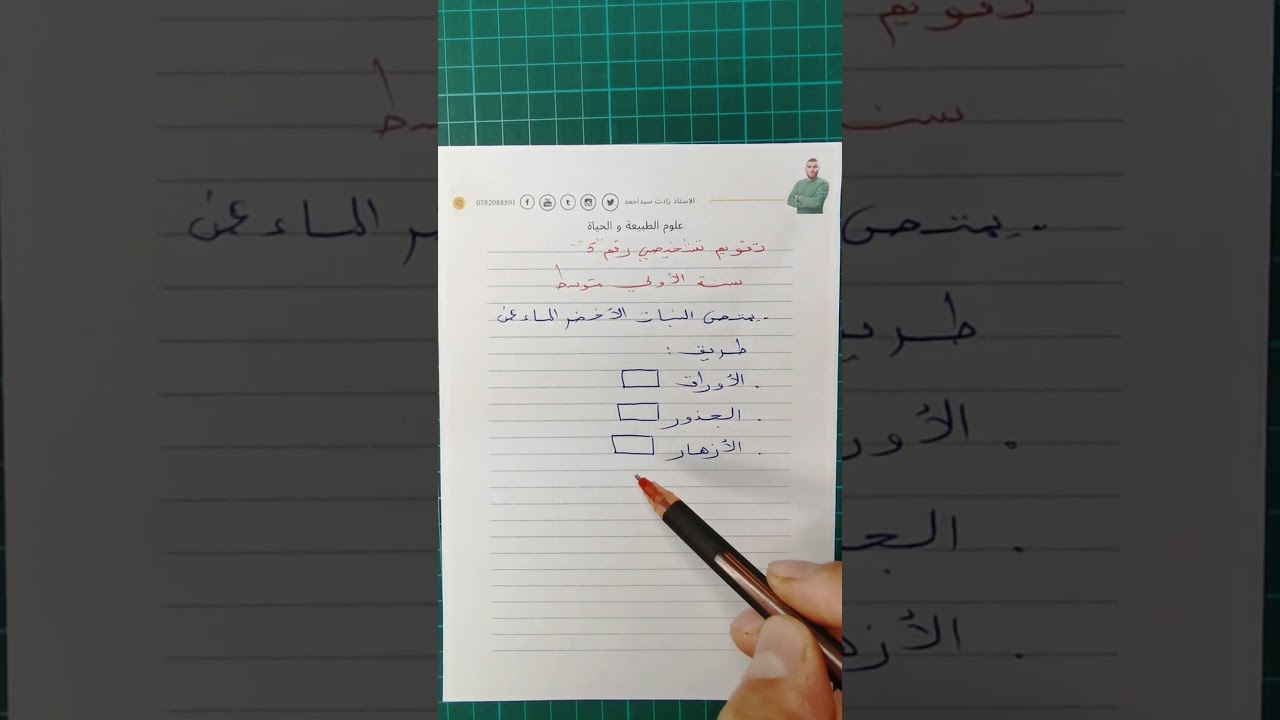 الاستاذ زادت سيداحمد 0782088501
علوم الطبيعة و الحياة
تقويم تشخيصي رقم 5
سنة الأولى متوسط
- يمتص النبات الأخضر الماء عن
طريق :
. الأوراق
. الجذور
. الأزهار